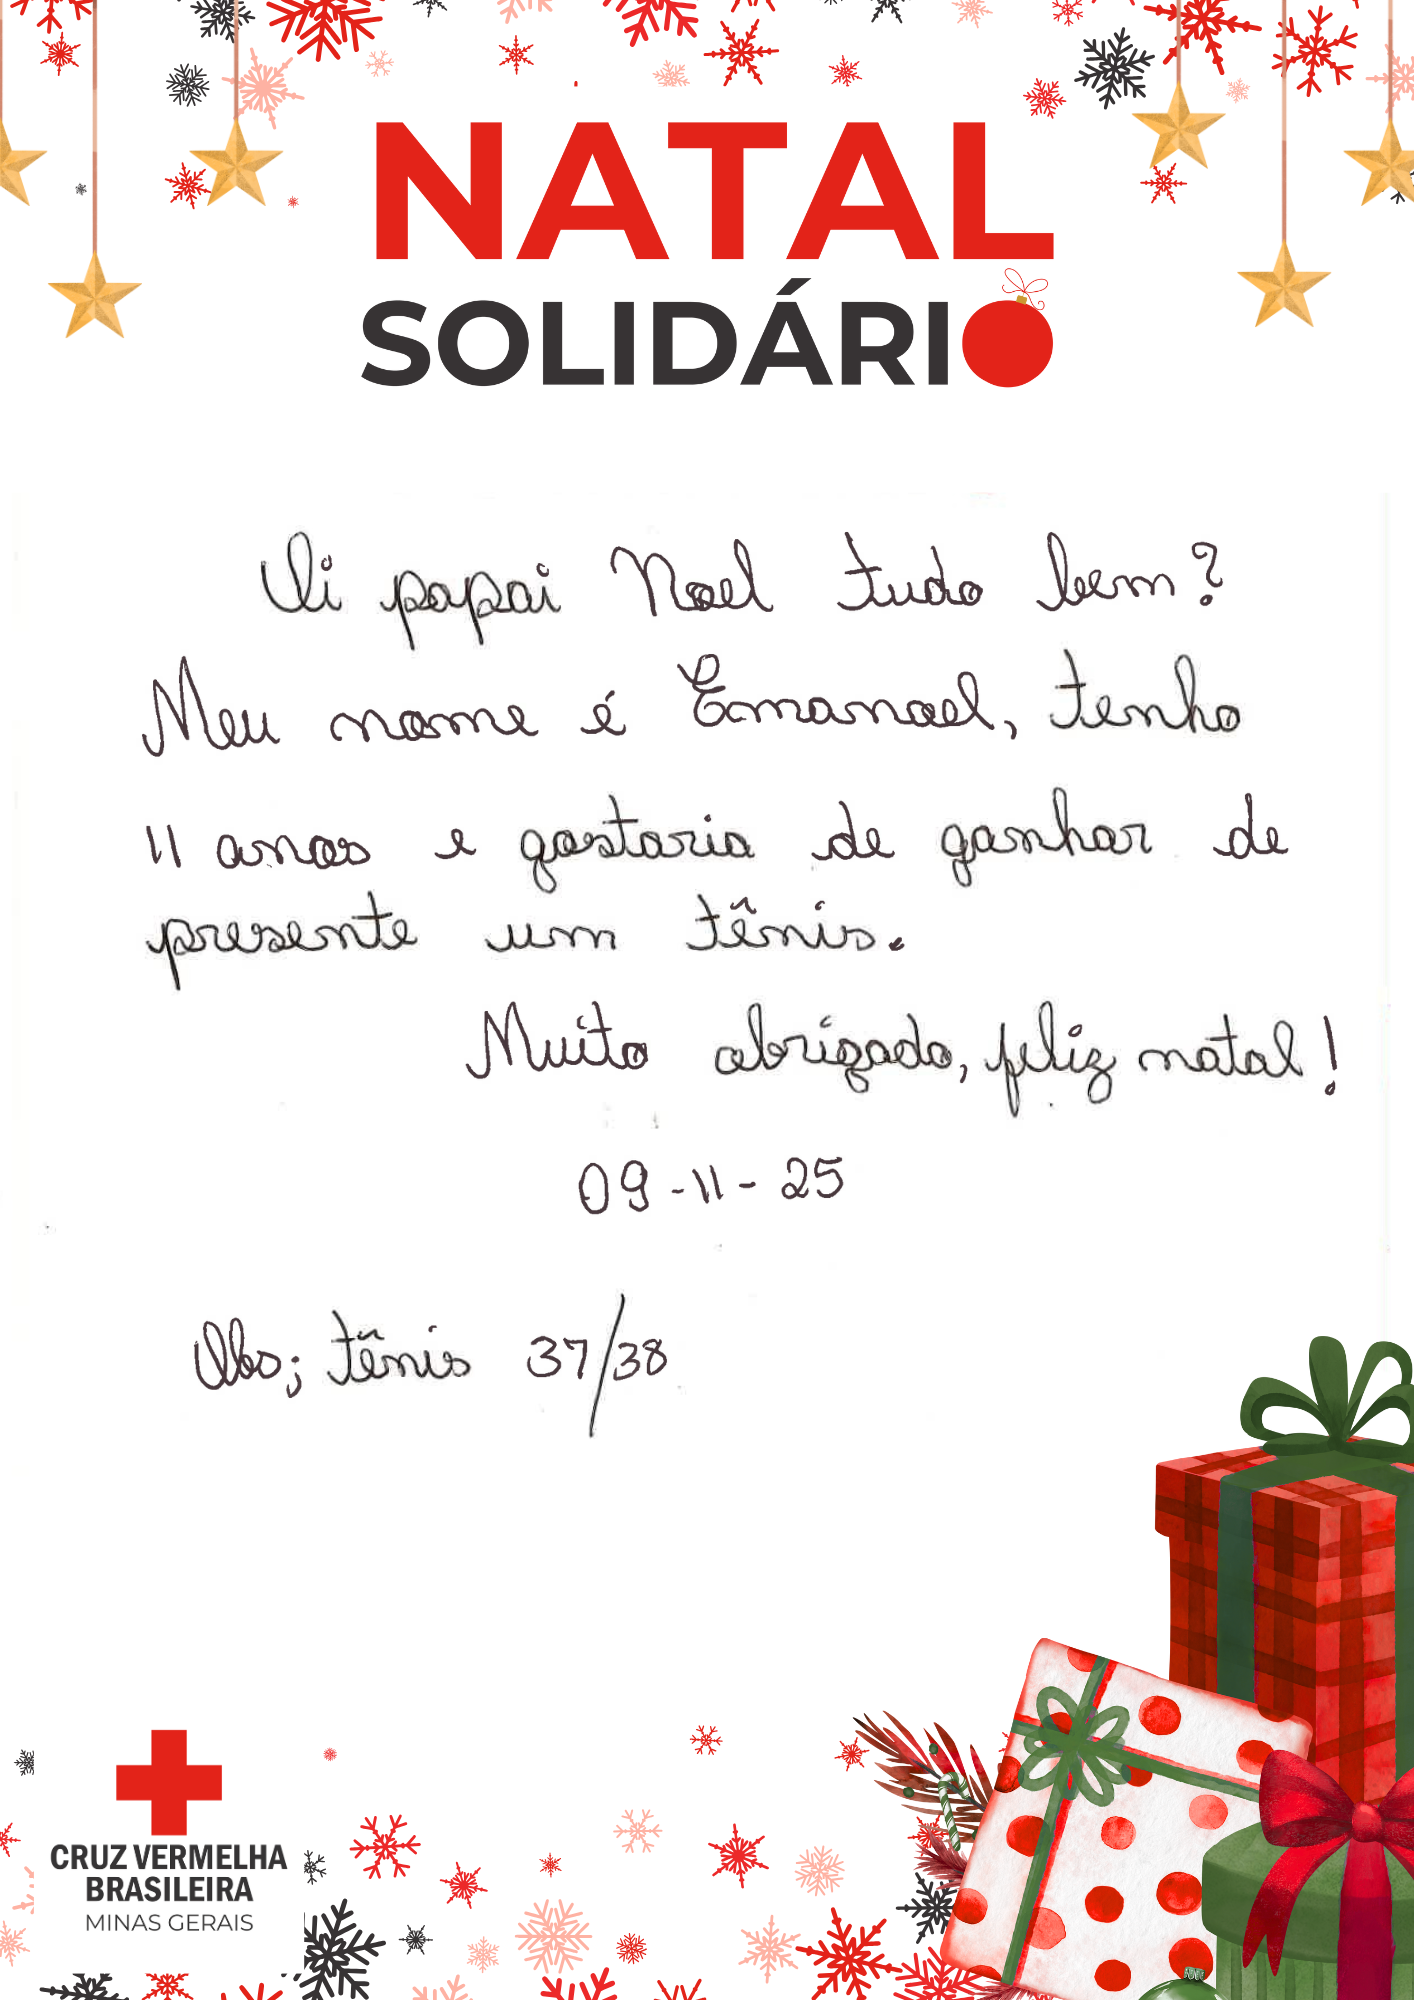 NATAL
SOLIDÁRIO
Oi papai Noel tudo bem?
Meu nome é Emanoel, tenho
11 anos e gostaria de ganhar de
presente um tênis.
Muito obrigado, feliz natal!
09-11-25
Obs; tênis 37/38
CRUZ VERMELHA
BRASILEIRA
MINAS GERAIS